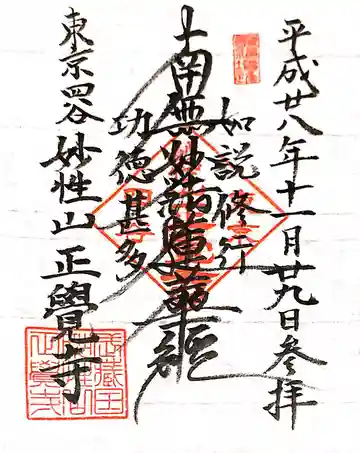 平成廿八年十一月廿九日参拝
如説修行
南無妙法蓮華経
功徳甚多
東京四谷 妙性山 正覺寺